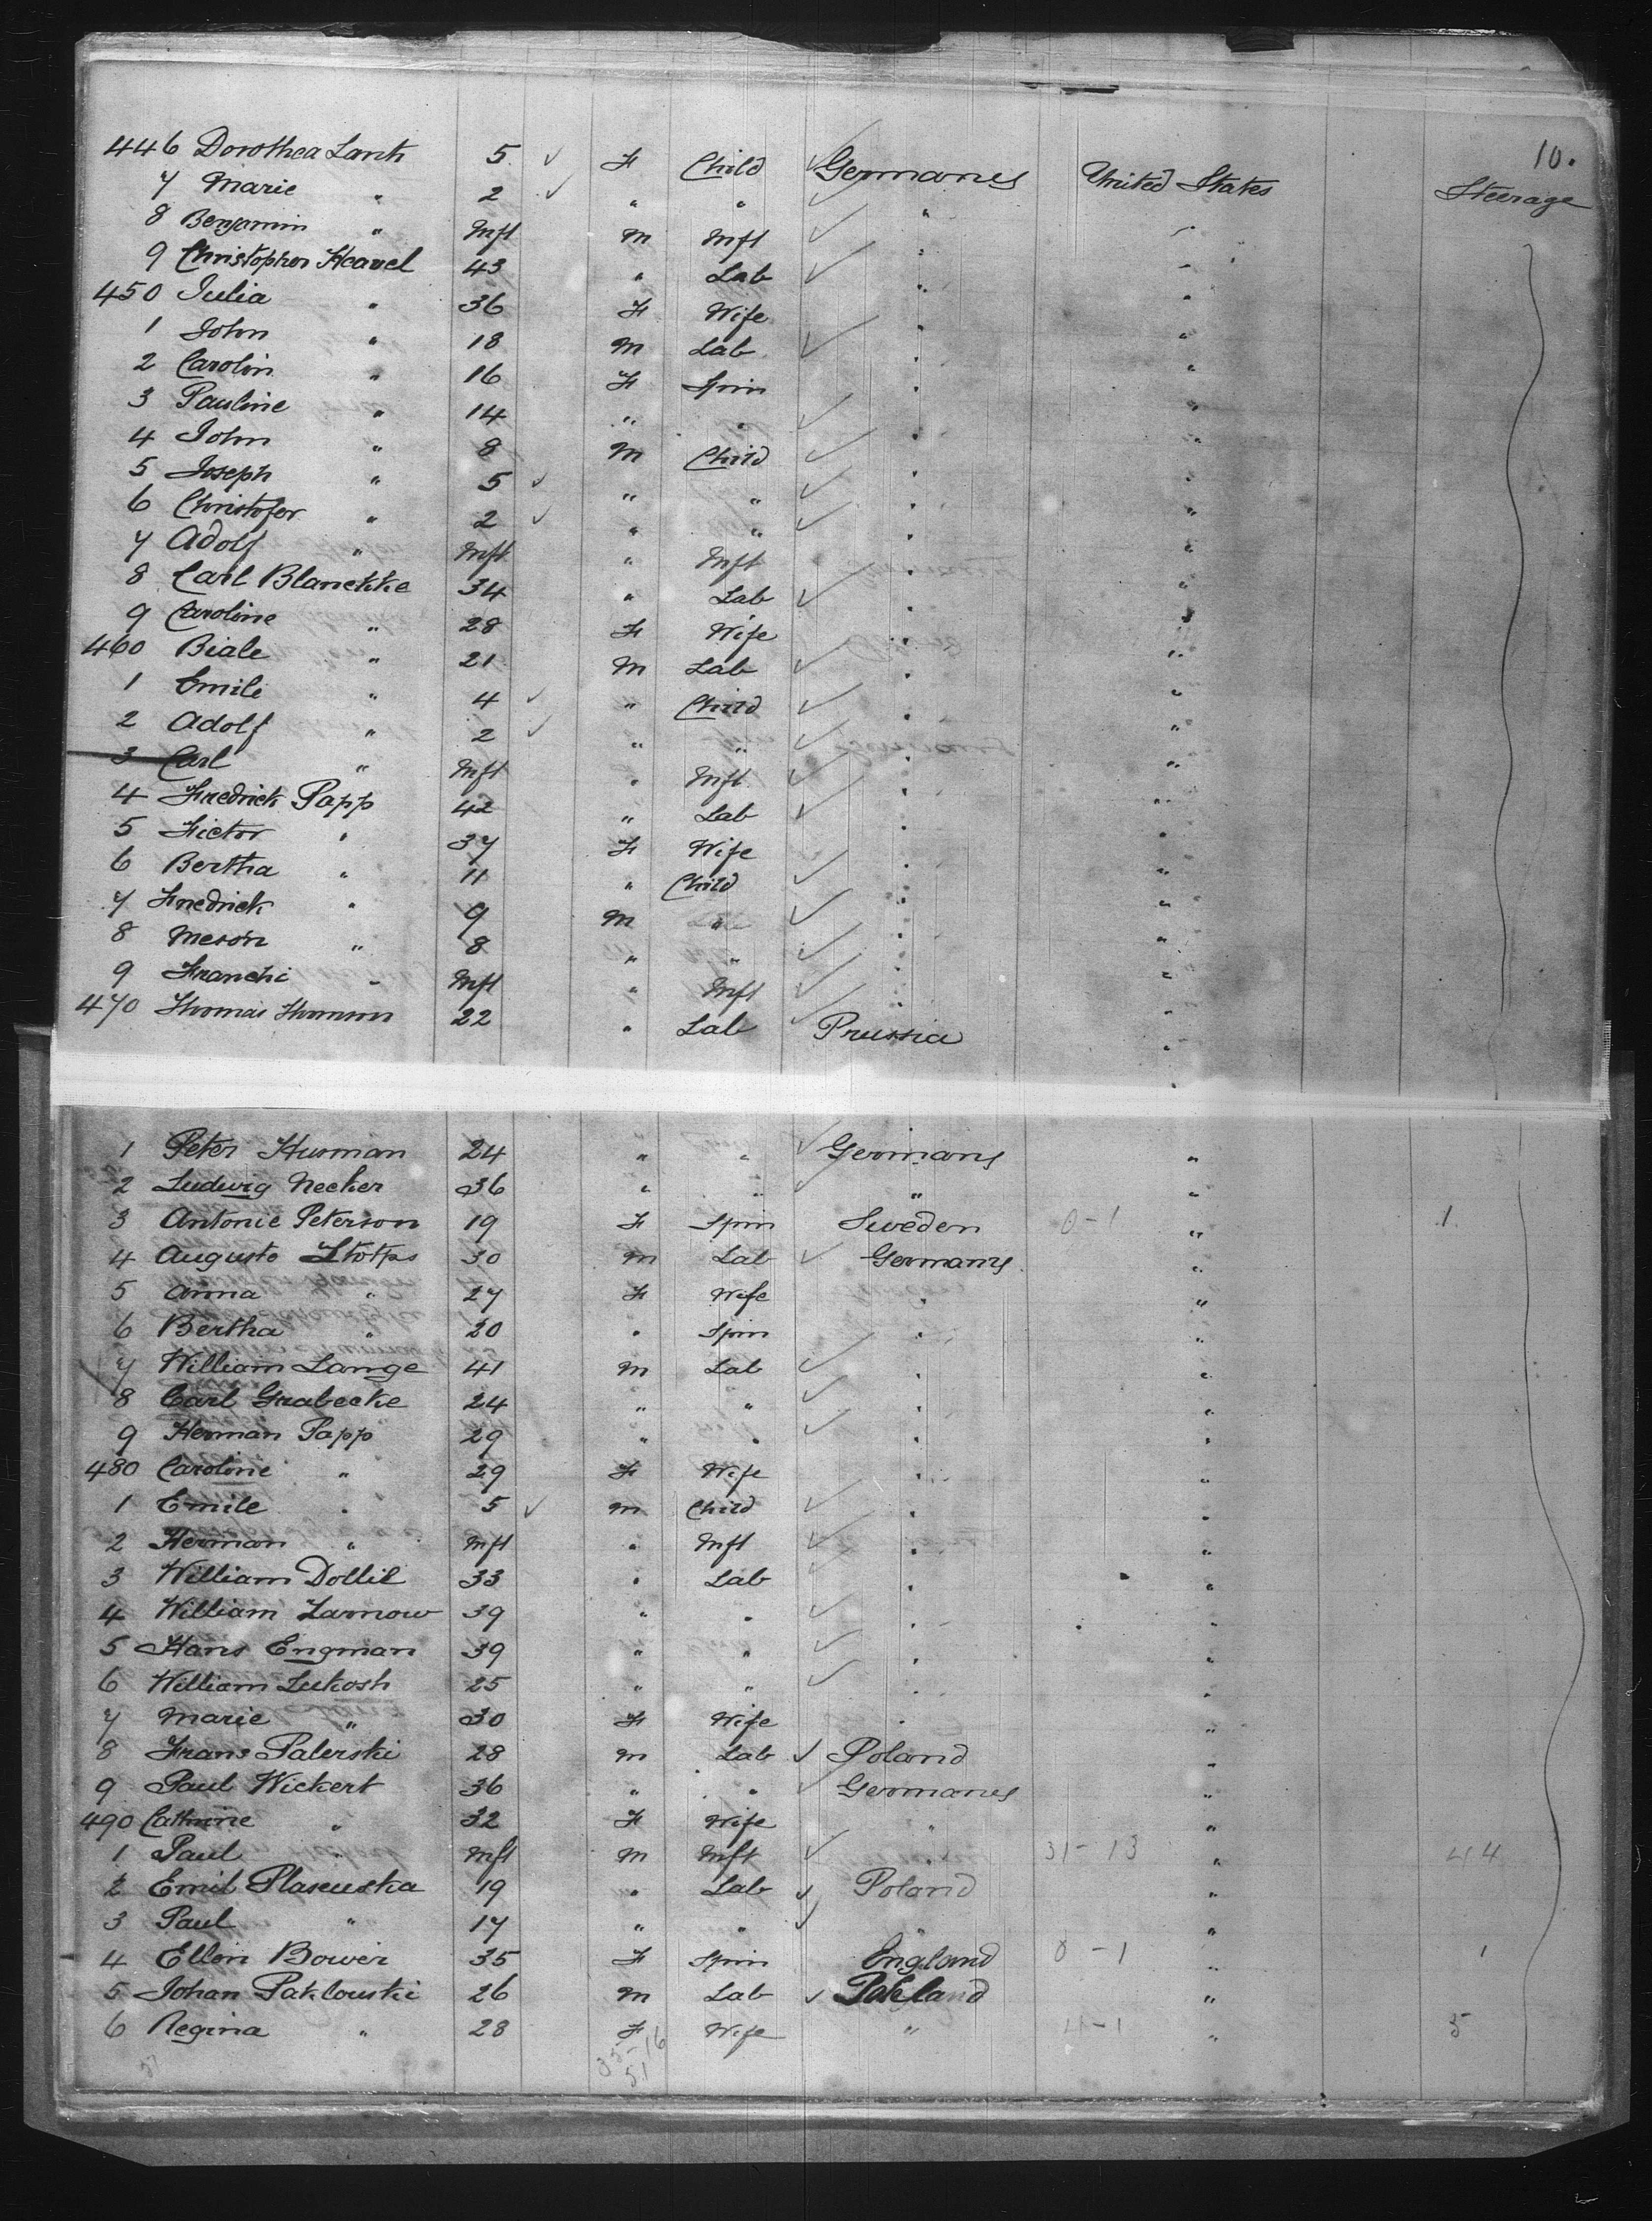 10.
446 Dorothea Lank 5 ✓ F Child ✓ Germany United States Steerage
7 Marie " 2 ✓ " " ✓ " "
8 Benjamin " Inft M Inft ✓ " "
9 Christopher Heavel 43 " Lab ✓ " "
450 Julia " 36 F Wife " "
1 John " 18 M Lab ✓ " "
2 Carolin " 16 F Spin " "
3 Pauline " 14 " " ✓ " "
4 John " 8 M Child ✓ " "
5 Joseph " 5 ✓ " " ✓ " "
6 Christofer " 2 ✓ " " ✓ " "
7 Adolf " Inft " Inft " "
8 Carl Blanekke 34 " Lab ✓ " "
9 Caroline " 28 F Wife " "
460 Biale " 21 M Lab ✓ " "
1 Emile " 4 ✓ " Child ✓ " "
2 Adolf " 2 ✓ " " ✓ " "
3 Carl " Inft " Inft ✓ " "
4 Fredrick Papp 42 " Lab ✓ " "
5 Fictor " 37 F Wife " "
6 Bertha " 11 " Child ✓ " "
7 Fredrick " 9 M " ✓ " "
8 Meson " 8 " " ✓ " "
9 Franchi " Inft " Inft ✓ " "
470 Thomas Thomson 22 " Lab ✓ Prussia "
1 Peter Husman 24 " " ✓ Germany "
2 Ludwig Necker 36 " " ✓ " "
3 Antonie Peterson 19 F Spin Sweden 0-1 " 1
4 Auguste Stotps 30 M Lab ✓ Germany "
5 Anna " 27 F Wife " "
6 Bertha " 20 " Spin " "
7 William Lange 41 M Lab ✓ " "
8 Carl Grabecke 24 " " ✓ " "
9 Herman Papp 29 " " ✓ " "
480 Caroline " 29 F Wife " "
1 Emile " 5 ✓ M Child ✓ " "
2 Herman " Inft " Inft ✓ " "
3 William Dollil 33 " Lab ✓ " "
4 William Zarnow 39 " " ✓ " "
5 Hans Engman 39 " " ✓ " "
6 William Lukosh 25 " " ✓ " "
7 Marie " 30 F Wife " "
8 Frans Palerski 28 M Lab ✓ Poland "
9 Paul Wickert 36 " " ✓ Germany "
490 Cathrine " 32 F Wife " "
1 Paul " Inft M Inft ✓ 31-13 " 44
2 Emil Plaseuska 19 " Lab ✓ Poland "
3 Paul " 17 " " ✓ " "
4 Ellen Bower 35 F Spin England 0-1 " 1
5 Johan Paklouski 26 M Lab ✓ Poland "
6 Regina " 28 F Wife " 4-1 " 5
51 35-16
51